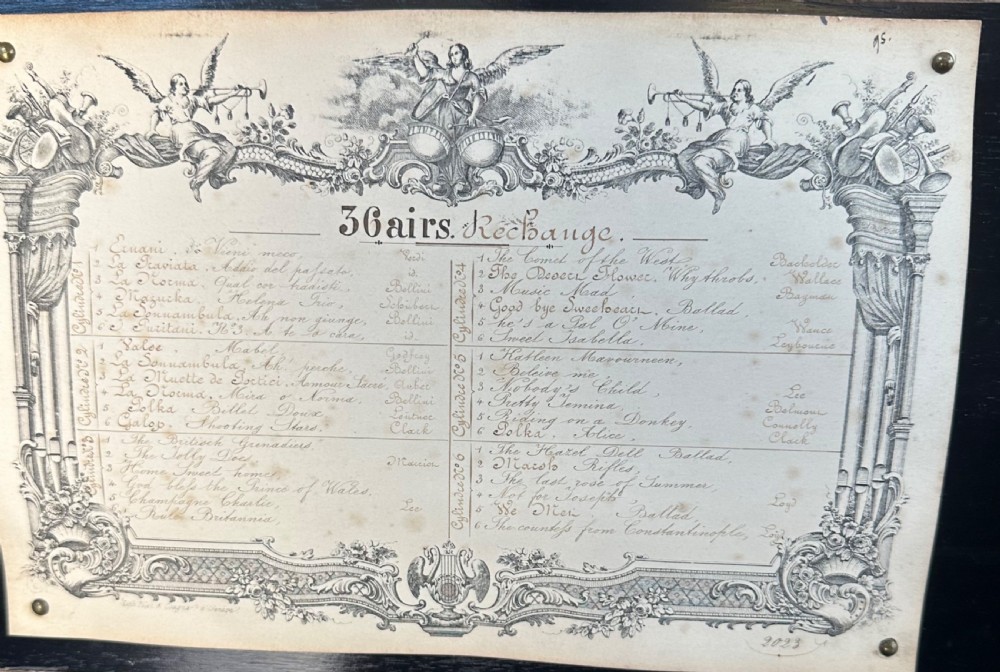 95.
36 airs. Rechange.
Cylindre № 1
1 Ernani, Vieni meco, Verdi
2 La Traviata, Addio del passato, id.
3 La Norma, Qual cor tradisti, Bellini
4 Mazurka, Helena Schubert
5 La Sonnambula, Ah non giunge, Bellini
6 I Puritani, № 3 A te o cara, id.
Cylindre № 2
1 Valse, Mabel, Godfrey
2 La Sonnambula, Ah perche, Bellini
3 La Muette de Portici, Amour Sacré, Auber
4 La Norma, Mira o Norma, Bellini
5 Polka Billet Doux
6 Galop, Shooting Stars, Clark
Cylindre № 3
1 The Britisch Grenadiers,
2 The Jolly Dog,
3 Home Sweet home,
4 God bless the Prince of Wales,
5 Champagne Charlie, Lee
6 Rule Britannia
Cylindre № 4
1 The Comet of the West
2 The Desert Flower, Why throbs, Wallace
3 Music Mad,
4 Good bye Sweetheart, Ballad,
5 he's a Pal O' Mine, Vance
6 Sweet Isabella, Leybourne
Cylindre № 5
1 Katleen Mavourneen,
2 Beleive me,
3 Nobody's Child, Lee
4 Pretty Jemima, Belmont
5 Riding on a Donkey, Connelly
6 Polka, Alice, Clark
Cylindre № 6
1 The Hazel Dell Ballad,
2 Marsh Rifles,
3 The last rose of Summer
4 Not for Joseph, Loyd
5 We Met, Ballad
6 The countess from Constantinople,
2023